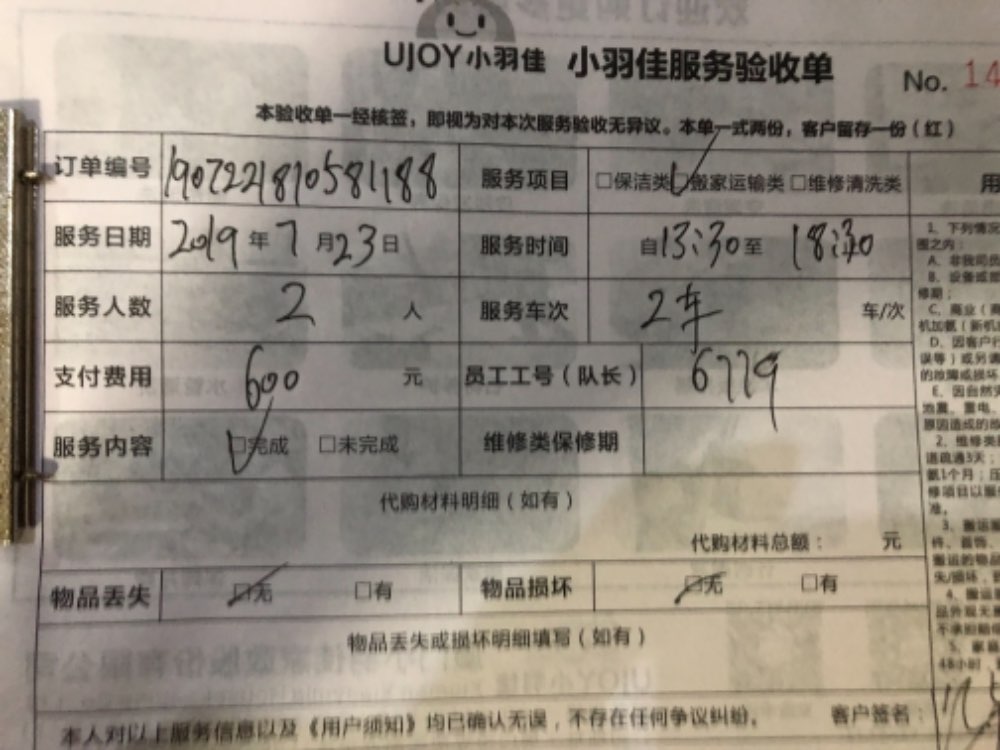 UJOY小羽佳 小羽佳服务验收单 No. 14
本验收单一经核签，即视为对本次服务验收无异议。本单一式两份，客户留存一份（红）
订单编号 190722181058188 服务项目 □保洁类 □搬家运输类 □维修清洗类
服务日期 2019年7月23日 服务时间 自13:30至 18:30
服务人数 2 人 服务车次 2车 车/次
支付费用 600 元 员工工号（队长） 6779
服务内容 □完成 □未完成 维修类保修期
代购材料明细（如有）
代购材料总额： 元
物品丢失 □无 □有 物品损坏 □无 □有
物品丢失或损坏明细填写（如有）
本人对以上服务信息以及《用户须知》均已确认无误，不存在任何争议纠纷。 客户签名：
用
1、下列情况
围之内：
A、非我司出
B、设备或故
修期；
C、商业（商
机加氨（新机
D、因客户行
误等）或另请
的故障或损坏
E、因自然灾
地震、雷电、
原因造成的故
2、维修类
道疏通3天；
氨1个月；压
修项目以服
准。
3、搬运服
件、首饰、
搬运的物品
失/损坏，
4、搬运
品外观无
不承担赔
5、家庭
48小时